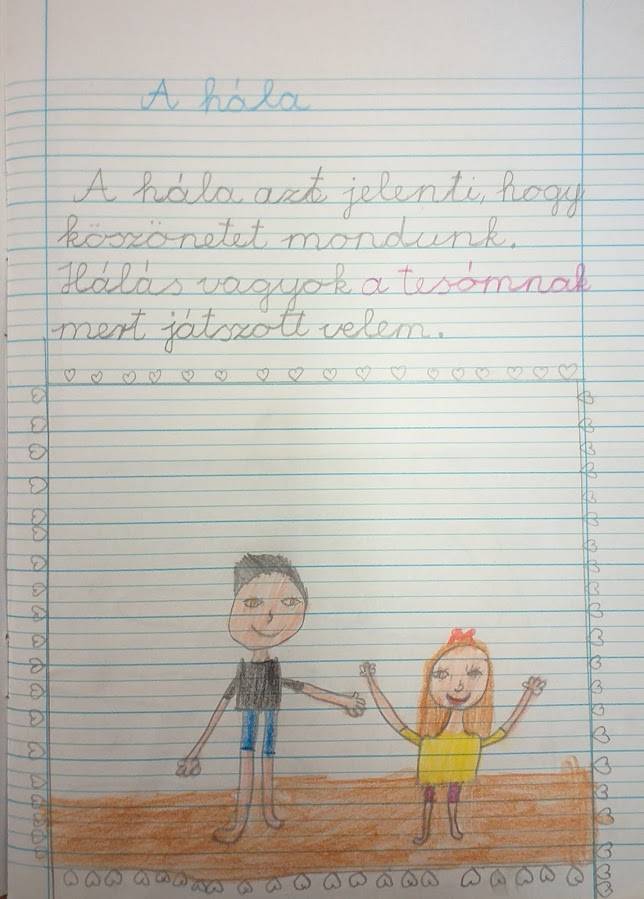 A hála
A hála azt jelenti, hogy
köszönetet mondunk.
Hálás vagyok a tesómnak
mert játszott velem.